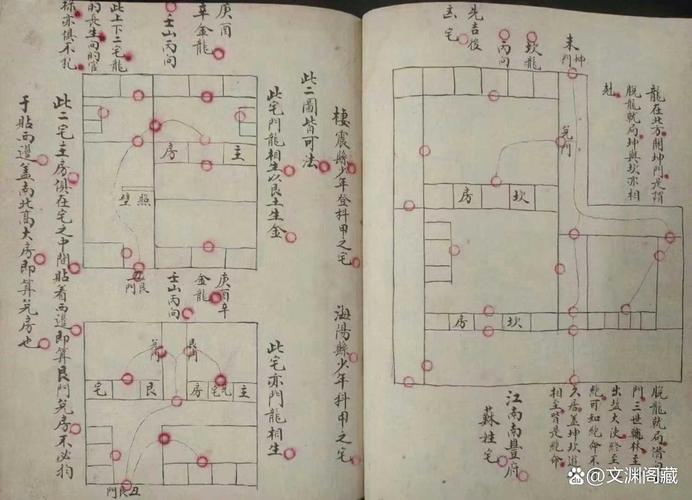 龍在北方開坤門是謂
脫龍就局坤與坎亦相
尅
未坤門
兌門
坎龍
丙向
先吉後
凶宅
坎房
坎房
脫龍就局
門三世翰林至
絕可知絕命不
相生皆是絕命
江南南豐府
蘇姓宅
棲霞縣少年登科甲之宅
海陽縣少年科甲之宅
此二圖皆可法
此宅門龍相生以艮土生金
此宅亦門龍相生
庚酉
辛金龍
壬山丙向
此上下二宅龍
的長生向的官
祿亦俱不孔
主房
照壁
艮丑門
庚酉辛
金龍
壬山丙向
艮門
主兌房
艮宅
丑艮門
此二宅主房俱在宅之中間貼着西邊即算艮門兌房不必拘
于貼西邊蓋南北高大房即算兌房也
文渊阁藏